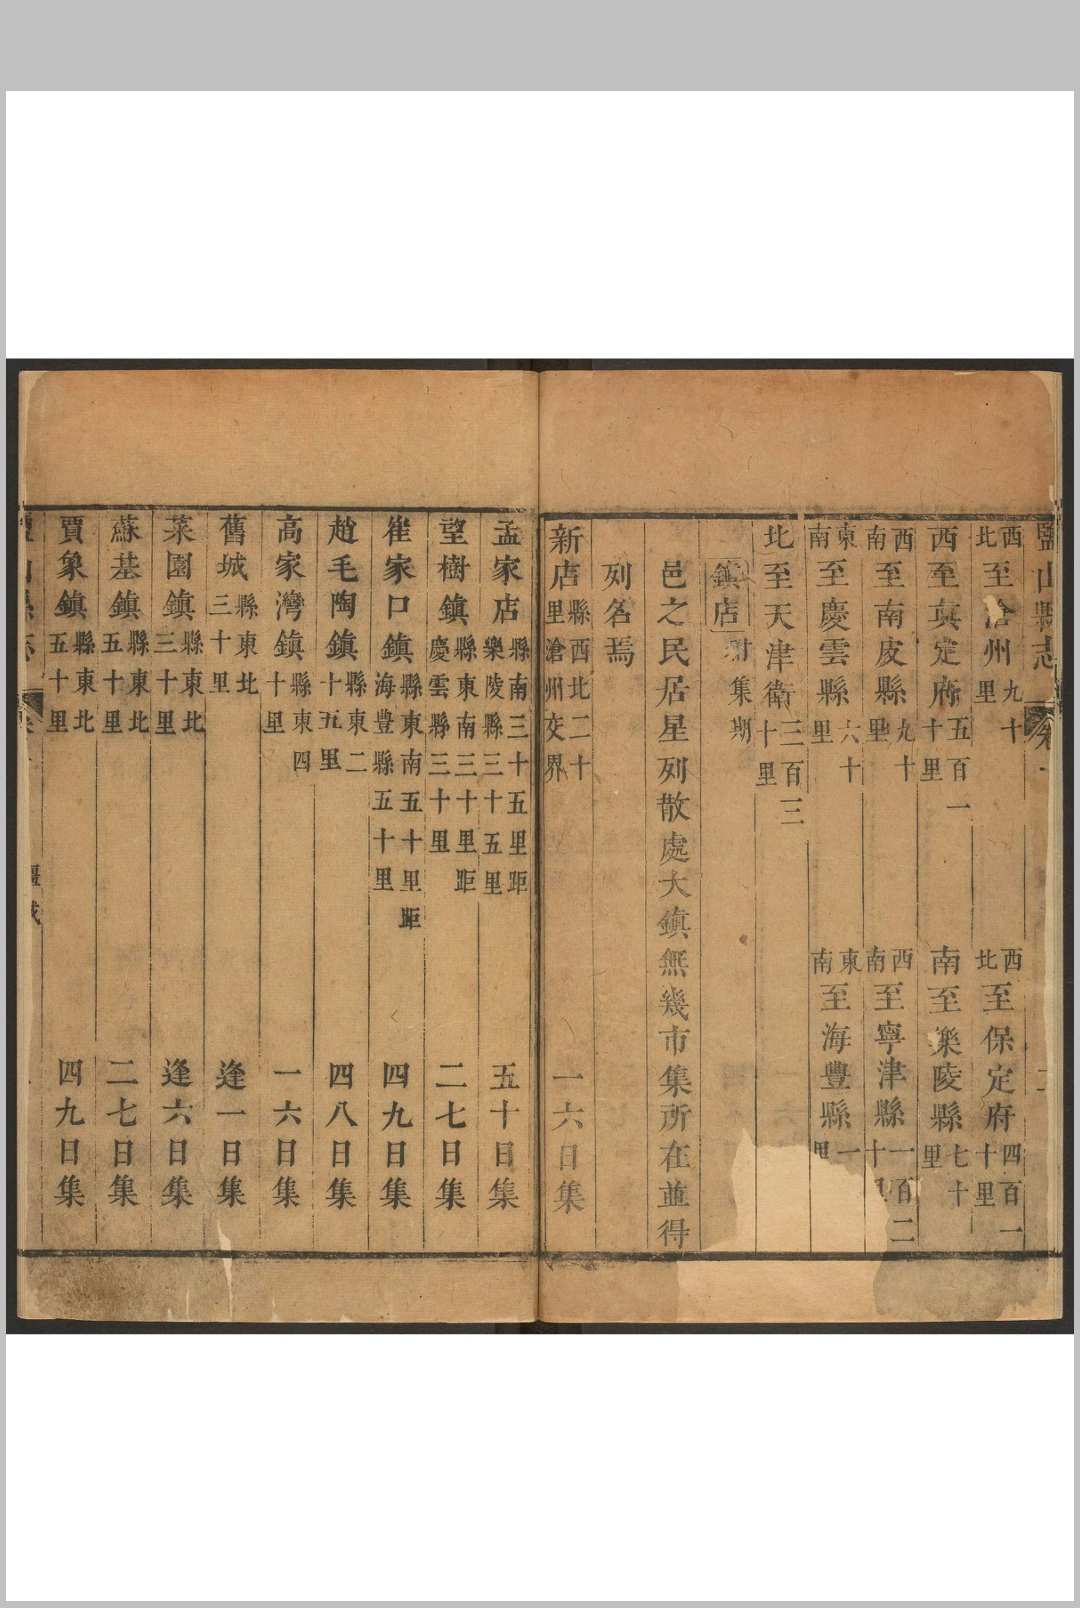 鹽山縣志 卷一 二
西北至滄州九十里 西北至保定府四百一十里
西至真定府五百一十里 南至樂陵縣七十里
西南至南皮縣九十里 西南至寧津縣一百二十里
東南至慶雲縣六十里 東南至海豐縣一 里
北至天津衛三百三十里
鎮店附集期
邑之民居星列散處大鎮無幾市集所在並得
列名焉
新店縣西北二十里滄州交界 一六日集
孟家店縣南三十五里距樂陵縣三十五里 五十日集
望樹鎮縣東南三十里距慶雲縣三十里 二七日集
崔家口鎮縣東南五十里距海豐縣五十里 四九日集
趙毛陶鎮縣東二十五里 四八日集
高家灣鎮縣東四十里 一六日集
舊城縣東北三十里 逢一日集
菜園鎮縣東北三十里 逢六日集
蘇基鎮縣東北五十里 二七日集
賈象鎮縣東北五十里 四九日集
疆域